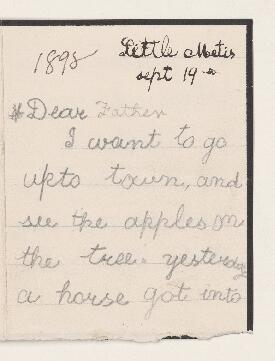 1898
Little Metis
sept 19
Dear Father
I want to go
upto town, and
see the apples on
the tree. yesterday
a horse got into